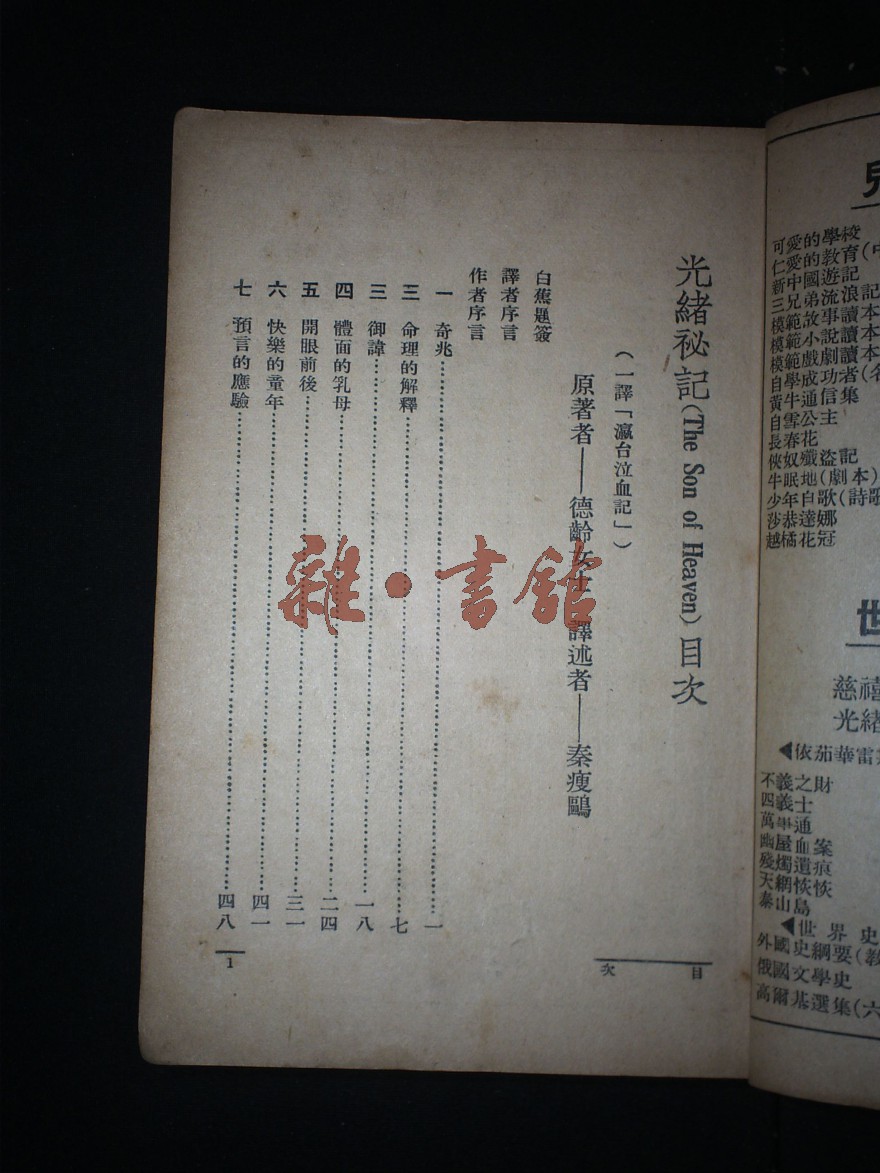 光緒祕記(The Son of Heaven)目次
(一譯「瀛台泣血記」)
原著者——德齡女士 譯述者——秦瘦鷗
白蕉題簽
譯者序言
作者序言
一 奇兆……一
三 命理的解釋……七
三 御諱……一八
四 體面的乳母……二四
五 開眼前後……三一
六 快樂的童年……四一
七 預言的應驗……四八
目次
1
雜·書館
兒
可愛的學校
仁愛的教育(中
新中國遊記
三兄弟流浪記
模範故事讀本
模範小說讀本
模範戲劇讀本
自學成功者(名
黃牛通信集
自雪公主
長春花
俠奴殲盜記
牛眠地(劇本)
少年自歌(詩歌
莎恭達娜
越橘花冠
世
慈禧
光緒
◀依茄華雷
不義之財
四義士
萬事通
幽屋血案
殘燭遺痕
天網恢恢
泰山島
◀世界史
外國史綱要(教
俄國文學史
高爾基選集(六